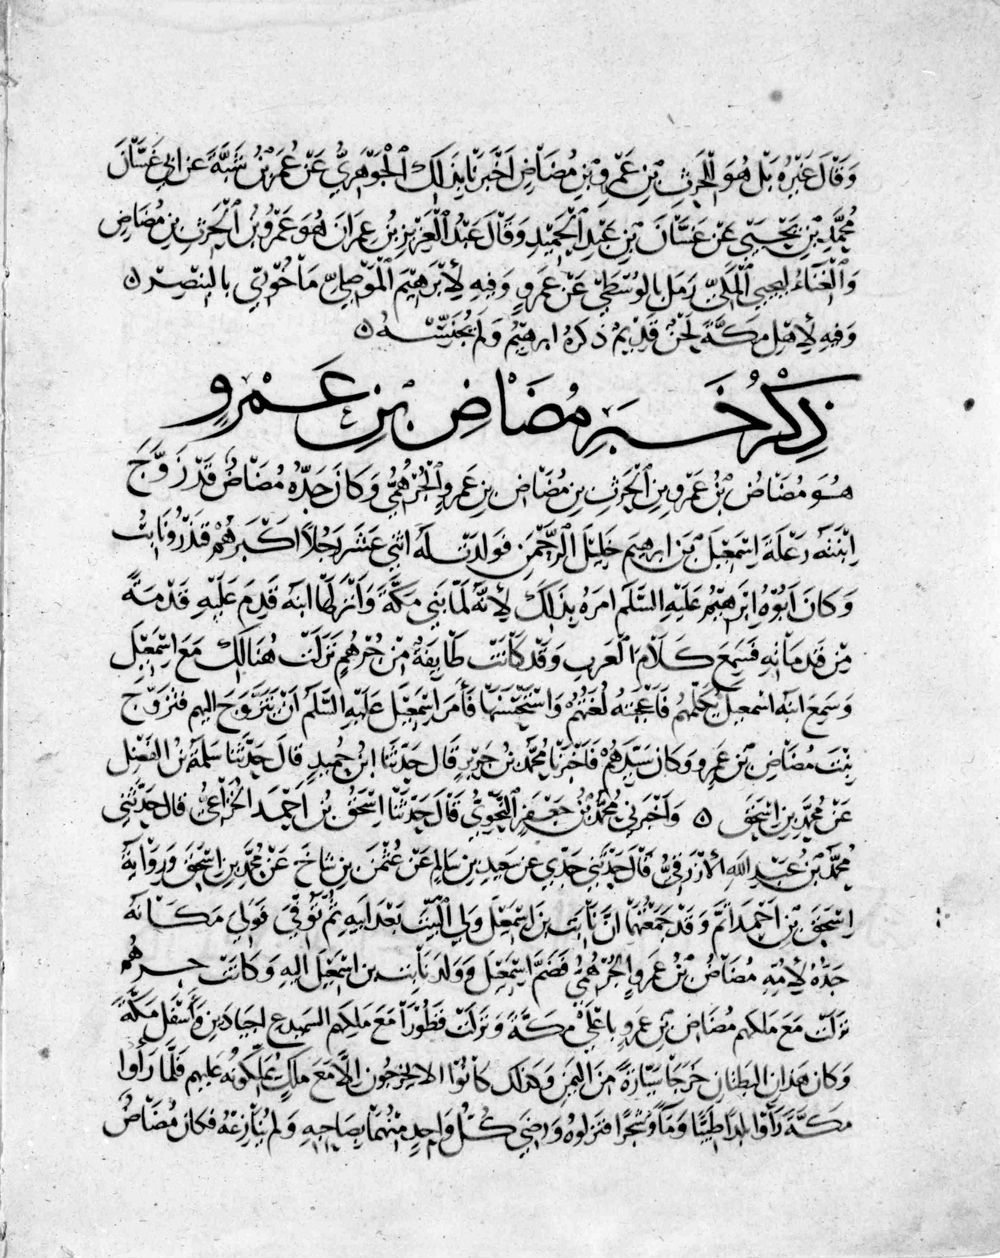 وَقَالَ غَيْرُهُ بَلْ هُوَ الْحَرِثِ بْنِ عَمْرِو بْنِ مُضَاضٍ اَخْبَرَنَا بِذٰلِكَ الْجَوْهَرِيُّ عَنْ عُمَرَ بْنِ شَبَّةَ عن ابي غَسَّانَ
مُحَمَّدِ بْنِ يَحْيَى عَنْ غَسَّانَ بْنِ عَبْدِ الْحَمِيدِ وَقَالَ عَبْدُ الْعَزِيزِ بْنُ عِمرَانَ هُوَ عَمْرُو بْنُ الْحَرِثِ بنِ مُضَاضٍ
وَالْغِنَاءُ ليحيى الْمَكِّيّ رَمَل بالوُسْطَى عَنْ عَمْرٍو وَفيهِ لِأَبْرَهِيْمَ الْمَوْصِلِيّ مَاخُوْرِيّ بالبِنْصِرِ ٥
وَفيهِ لِأَهْلِ مَكَّةَ لَحْنٌ قَدِيمٌ ذكرهُ ابرهيْمُ وَلَمْ يُجَنِّسْهُ ٥
ذِكْرُ خَبَرِ مُضَاضِ بْنِ عَمْرٍو
هُوَ مُضَاضُ بْنُ عَمْرِو بنِ الْحَرِثِ بنِ مُضَاضِ بنِ عَمرٍو الْجُرْهُمِيُّ وَكَانَ جَدُّهُ مُضَاضٌ قَدْ زَوَّجَ
ابْنَتَهُ رَعْلَةَ اِسْمَعِيْلَ بْنَ ابرهيم خَلِيْلَ الرَّحْمَنِ فولدتْ لَهُ اثني عَشَرَ رَجُلاً اَكْبَرهُمْ قَيْذَرُ وَنَابِتُ
وَكَانَ اَبُوْهُ اِبْرَهِيْمُ عَلَيْهِ السَّلَم امرهُ بِذٰلِكَ لِأَنَّهُ لَمَّا بَنى مَكَّةَ وَاَنْزَلَهَا ابنَهُ قَدِمَ عَلَيْهِ قَدْمَةً
مِنْ قَدَمَاتِهِ فَسَمِعَ كَلَامَ الْعَرَبِ وَقَد كَانَتْ طَايِفَةٌ مِنْ جُرْهُمٍ نَزَلَتْ هُنَالِكَ مَعَ اِسْمَعِيْلَ
وَسَمِعَ ابنَهُ اسمعيل يُكَلِّمُهُمْ فَأَعْجَبَتْهُ لُغَتُهُمْ وَاسْتَحْسَنَهَا فَأَمَرَ اِسْمَعِيْلَ عَلَيْهِ السَّلَم اَنْ يَتَزَوَّجَ اليهم فتزوّج
بِنْتَ مُضَاضِ بْنِ عَمْرٍو وَكانَ سَيِّدَهُمْ فَأَخْبَرَنَا مُحَمَّدُ بْنُ جَرِيْرٍ قَالَ حَدَّثَنَا ابْنُ حُمَيدٍ قالَ حَدَّثَنا سَلَمَةُ بنُ الفضل
عَنْ مُحَمَّدِ بنِ اسحَقَ ٥ وَاَخبَرَنِي مُحَمَّدُ بْنُ جَعْفَرٍ النَّحْوِيُّ قَالَ حَدَّثَنَا اِسْحَقُ بْنُ اَحْمَدَ الْخُزَاعِيُّ قال حَدَّثَني
مُحَمَّدُ بْنُ عَبْدِ اللهِ الأَزْرَقِيُّ قَالَ حَدَّثَنِي جَدِّي عن سَعيدِ بنِ سَالِمٍ عَنْ عُثمٰنَ بنِ سَاجٍ عَنْ مُحَمَّدِ بنِ اسْحَقَ وَرِوَايَةُ
اِسْحَقَ بْنِ اَحْمَدَ اَتَمُّ وَقَدْ جَمَعْتُهُمَا اَنَّ نَابِتَ بْنَ اِسْمَعِيْلَ وَلِيَ الْبَيْتَ بَعْدَ ابيهِ ثُمَّ تُوُفِّيَ فَوَلِيَ مَكَانَهُ
جَدُّهُ لِأُمِّهِ مُضَاضُ بْنُ عَمْرٍو الْجُرْهُمِيُّ فَضَمَّ اسْمَعِيْلَ وَوَلَدَ نَابِت بن اسْمَعِيْلَ اليهِ وَكَانَتْ جرهم
نَزَلَتْ مَعَ مَلكهم مُضَاضِ بْنِ عَمْرٍو بِاَعْلَى مَكَّةَ وَنَزلتْ قَطُوْرَاْ مَعَ مَلكهم السَّمَيدع اجيادين وَأَسْفَلَ مَكَّةَ
وَكان هَذان البطنانِ خَرَجَا سَيَّارَةً مِنَ الْيَمَنِ وَكذلك كَانُوا لا يخرجُون الَّا مَعَ مَلِكٍ يُمَلِّكُونَهُ عليهم فَلَمَّا رَأَوا
مَكَّةَ رَأَوا بلدًا طَيِّبًا وَمَاءً وَشَجَرًا فنزلوهُ وَرَضِيَ كُلُّ وَاحِدٍ مِنْهُمَا بِصَاحِبِهِ وَلَمْ يُنَازِعْهُ فكان مُضَاضٌ